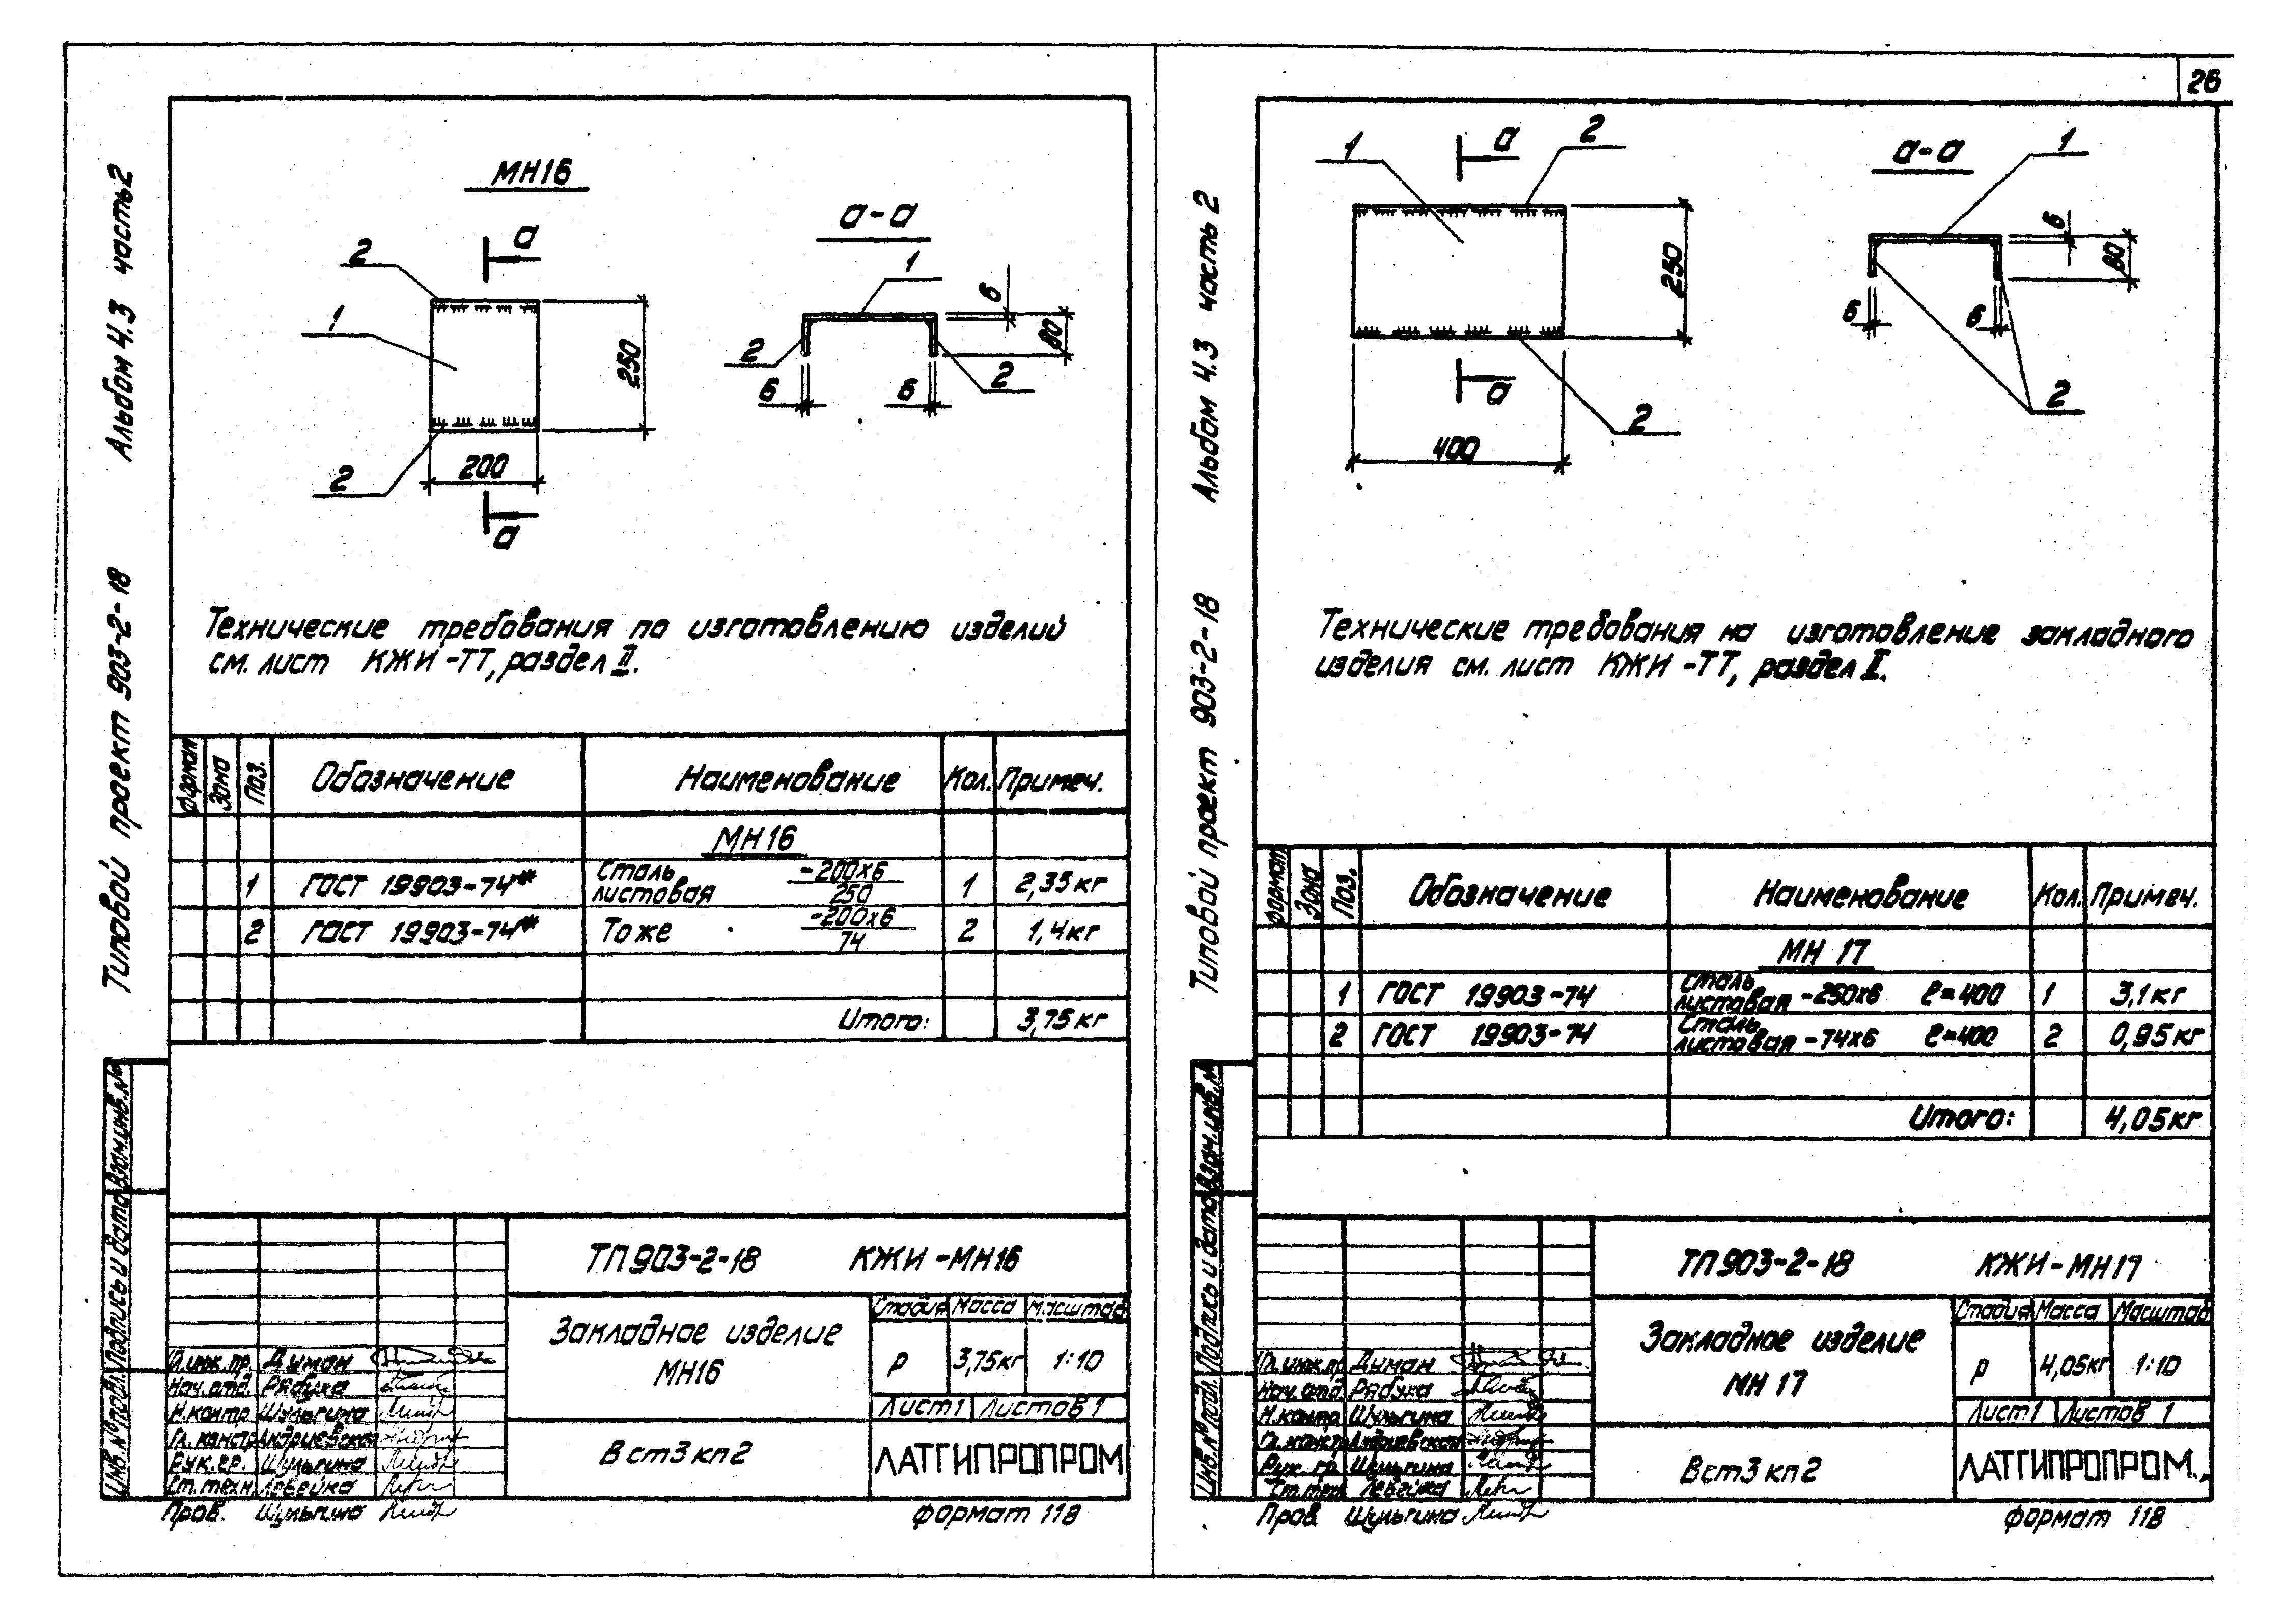 26
Альбом 4.3 часть 2
Типовой проект 903-2-18
МН16
а
2
1
250
2
200
а
а-а
1
6
80
2
2
6
6
Технические требования по изготовлению изделий
см. лист КЖИ-ТТ, раздел II.
формат Зона Поз. Обозначение Наименование Кол. Примеч.
МН16
1 ГОСТ 19903-74* Сталь листовая -200х6/250 1 2,35кг
2 ГОСТ 19903-74* То же -200х6/74 2 1,4кг
Итого: 3,75кг
Взам.инв.№
Подпись и дата
Инв.№подл.
ТП903-2-18 КЖИ-МН16
Закладное изделие
МН16
Стадия Масса Масштаб
р 3,75кг 1:10
Лист1 Листов 1
В ст3 кп2
ЛАТГИПРОПРОМ
Гл.инж.пр. Думан
Нач.отд. Рябуха
Н.контр Шульгина
Гл. констр Андриевская
Рук.гр. Шульгина
Ст.техн. Левейка
Пров. Шульгина
формат 11В
Альбом 4.3 часть 2
Типовой проект 903-2-18
1
а
2
250
а
2
400
а-а
1
6
80
6
6
2
Технические требования на изготовление закладного
изделия см. лист КЖИ-ТТ, раздел II.
формат Зона Поз. Обозначение Наименование Кол. Примеч.
МН 17
1 ГОСТ 19903-74 Сталь листовая -250х6 ℓ=400 1 3,1кг
2 ГОСТ 19903-74 Сталь листовая -74х6 ℓ=400 2 0,95кг
Итого: 4,05кг
Взам.инв.№
Подпись и дата
Инв.№подл.
ТП903-2-18 КЖИ-МН17
Закладное изделие
МН 17
Стадия Масса Масштаб
р 4,05кг 1:10
Лист1 Листов 1
В ст3 кп2
ЛАТГИПРОПРОМ
Гл.инж.пр. Думан
Нач.отд. Рябуха
Н.контр Шульгина
Гл.констр Андриевская
Рук. гр. Шульгина
Ст.техн Левейка
Пров. Шульгина
формат 11В